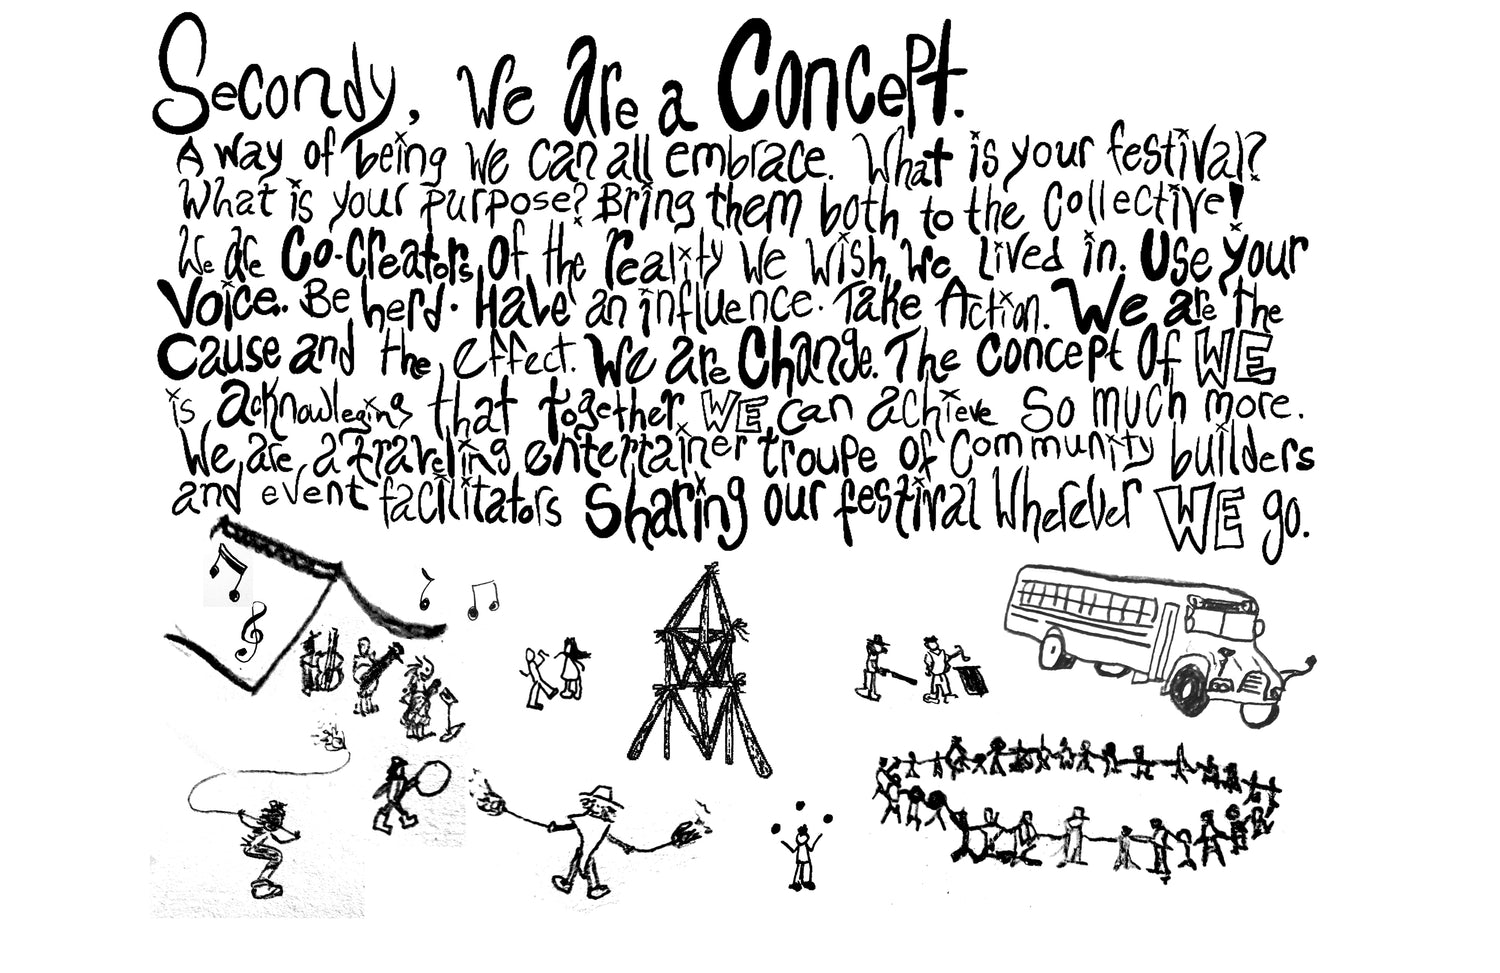 Secondy, We are a Concept.
A way of being We can all embrace. What is your festival?
What is your purpose? Bring them both to the Collective!
We are Co-Creators of the reality We Wish We lived in. Use your
Voice. Be herd. Have an influence. Take Action. We are the
Cause and the effect. We are Change. The Concept Of WE
is acknowleging that together WE can achieve So much more.
We are a traveling entertainer troupe of Community builders
and event facilitators Sharing our festival Wherever WE go.